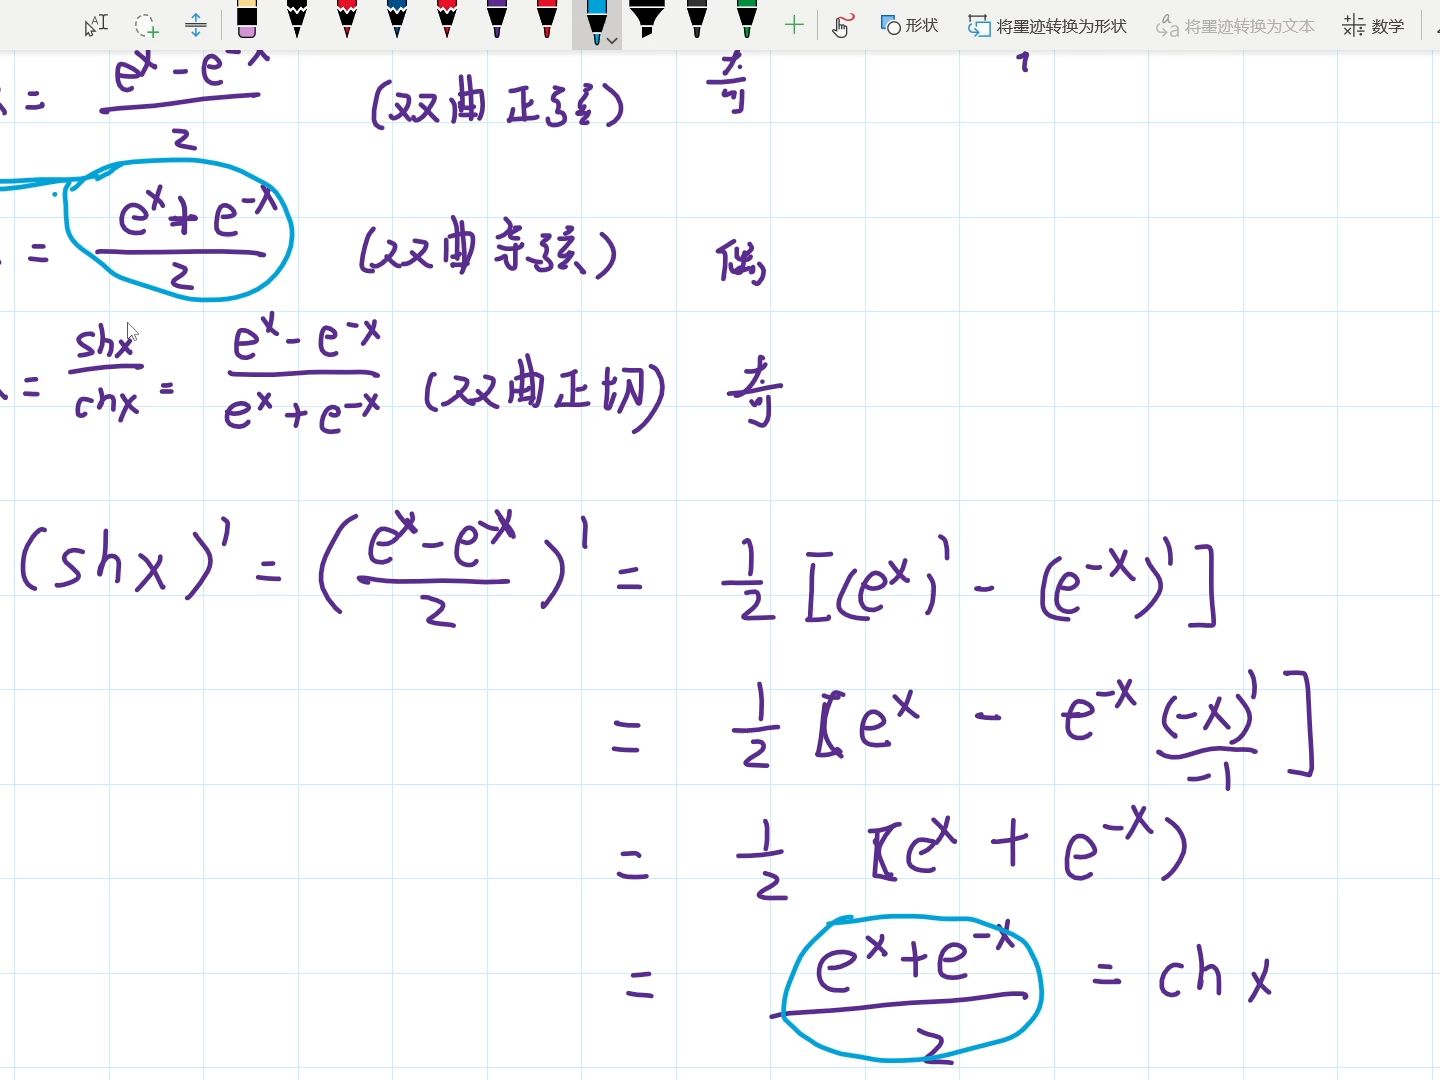 形状 将墨迹转换为形状 将墨迹转换为文本 数学
= (e^x - e^-x)/2 (双曲正弦) 奇
= (e^x + e^-x)/2 (双曲余弦) 偶
= shx/chx = (e^x - e^-x)/(e^x + e^-x) (双曲正切) 奇
(shx)' = ((e^x - e^-x)/2)' = 1/2 [(e^x)' - (e^-x)']
= 1/2 [e^x - e^-x (-x)']
-1
= 1/2 [e^x + e^-x)
= (e^x + e^-x)/2 = chx